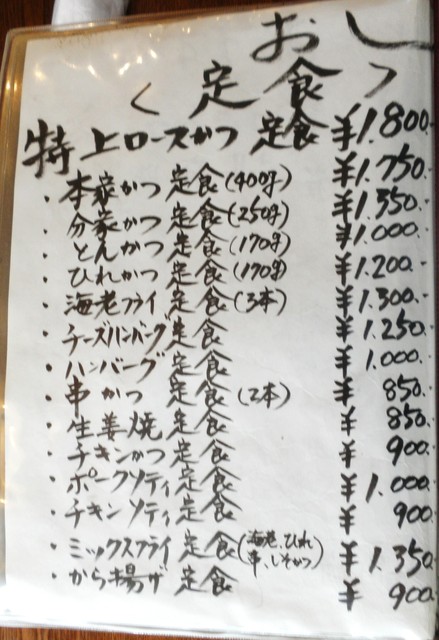 おし
く 定食 つ
特上ロースかつ 定食 ¥1.800-
・本家かつ 定食(400g) ¥1.750.-
・分家かつ 定食(250g) ¥1.350.-
・とんかつ 定食(170g) ¥1.000.-
・ひれかつ 定食(170g) ¥1.200.-
・海老フライ 定食(3本) ¥1.300.-
・チーズハンバーグ定食 ¥1.250.-
・ハンバーグ 定食 ¥1.000.-
・串かつ 定食(2本) ¥850-
・生姜焼 定食 ¥850-
・チキンかつ 定食 ¥900-
・ポークソティ定食 ¥1.000.-
・チキンソティ定食 ¥900-
・ミックスフライ 定食(海老、ひれ 串、しそかつ) ¥1.350-
・から揚げ 定食 ¥900-